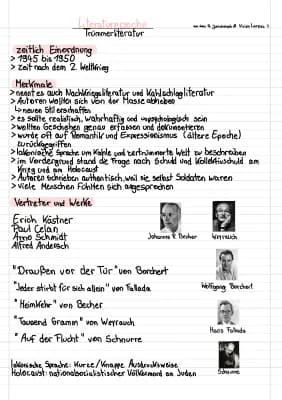 Literaturepoche
Trümmerliteratur
zeitlich Einordnung
> 1945 bis 1950
> zeit nach dem 2. Weltkrieg
Merkmale
> nennt es auch Nachkriegsliteratur und Kahlschlagliteratur
> Autoren wollten sich von der Masse abheben
↳ neuen Stil erschaffen
> es sollte realistisch, wahrhaftig und unpsychologisch sein
> wollten Geschehen genau erfassen und dokumentieren
> wurde oft auf Romantik und Expressionismus (ältere Epoche)
zurückgegriffen
> lakonische Sprache um Kahle und zertrümmerte Welt zu beschreiben
> im Vordergrund stand die Frage nach Schuld und Kollektivschuld am
Krieg und am Holocaust
> Autoren schrieben authentisch, weil sie selbst Soldaten waren
> viele Menschen fühlten sich angesprochen
Vertreter und Werke
Erich Kästner
Paul Celan
Arno Schmidt
Alfred Andersch
Johannes R. Becher
Weyrauch
"Draußen vor der Tür" von Borchert
Wolfgang Borchert
"Jeder stirbt für sich allein" von Fallada
"Heimkehr" von Becher
"Tausend Gramm" von Weyrauch
Hans Fallada
"Auf der Flucht" von Schnurre
Schnurre
lakonische Sprache: Kurze/Knappe Ausdrucksweise
Holocaust: nationalsozialistischer Völkermord an Juden